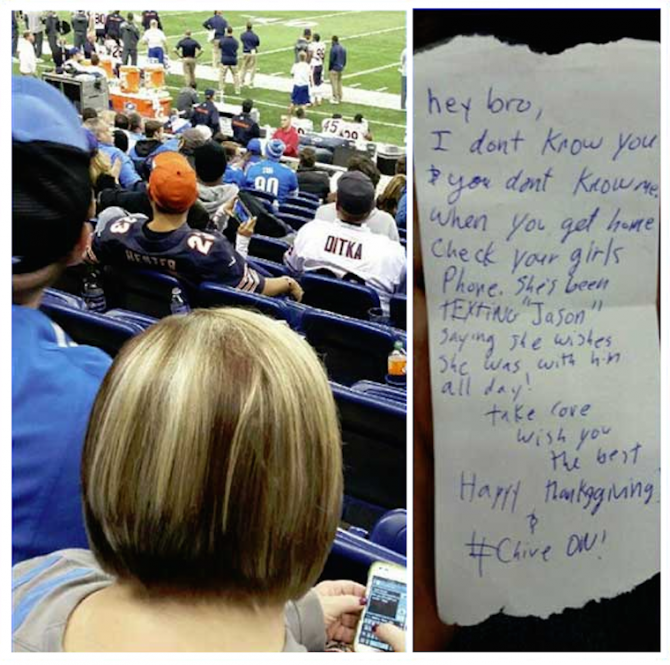 HESTER
23
DITKA
90
45
hey bro,
I dont know you
& you dont know me.
when you get home
Check your girls
Phone. She's been
TEXTING "Jason"
Saying she wishes
She was with him
all day!
take care
wish you
the best
Happy thanksgiving
&
#Chive ON!